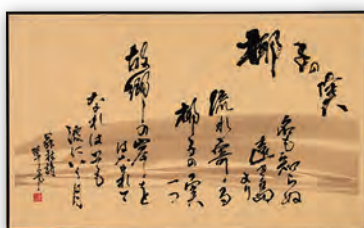 椰子の実
名も知らぬ
遠き島
より
流れ寄る
椰子の実
一つ
故郷の岸を
はなれて
なれはそも
波にいく月
藤村詩